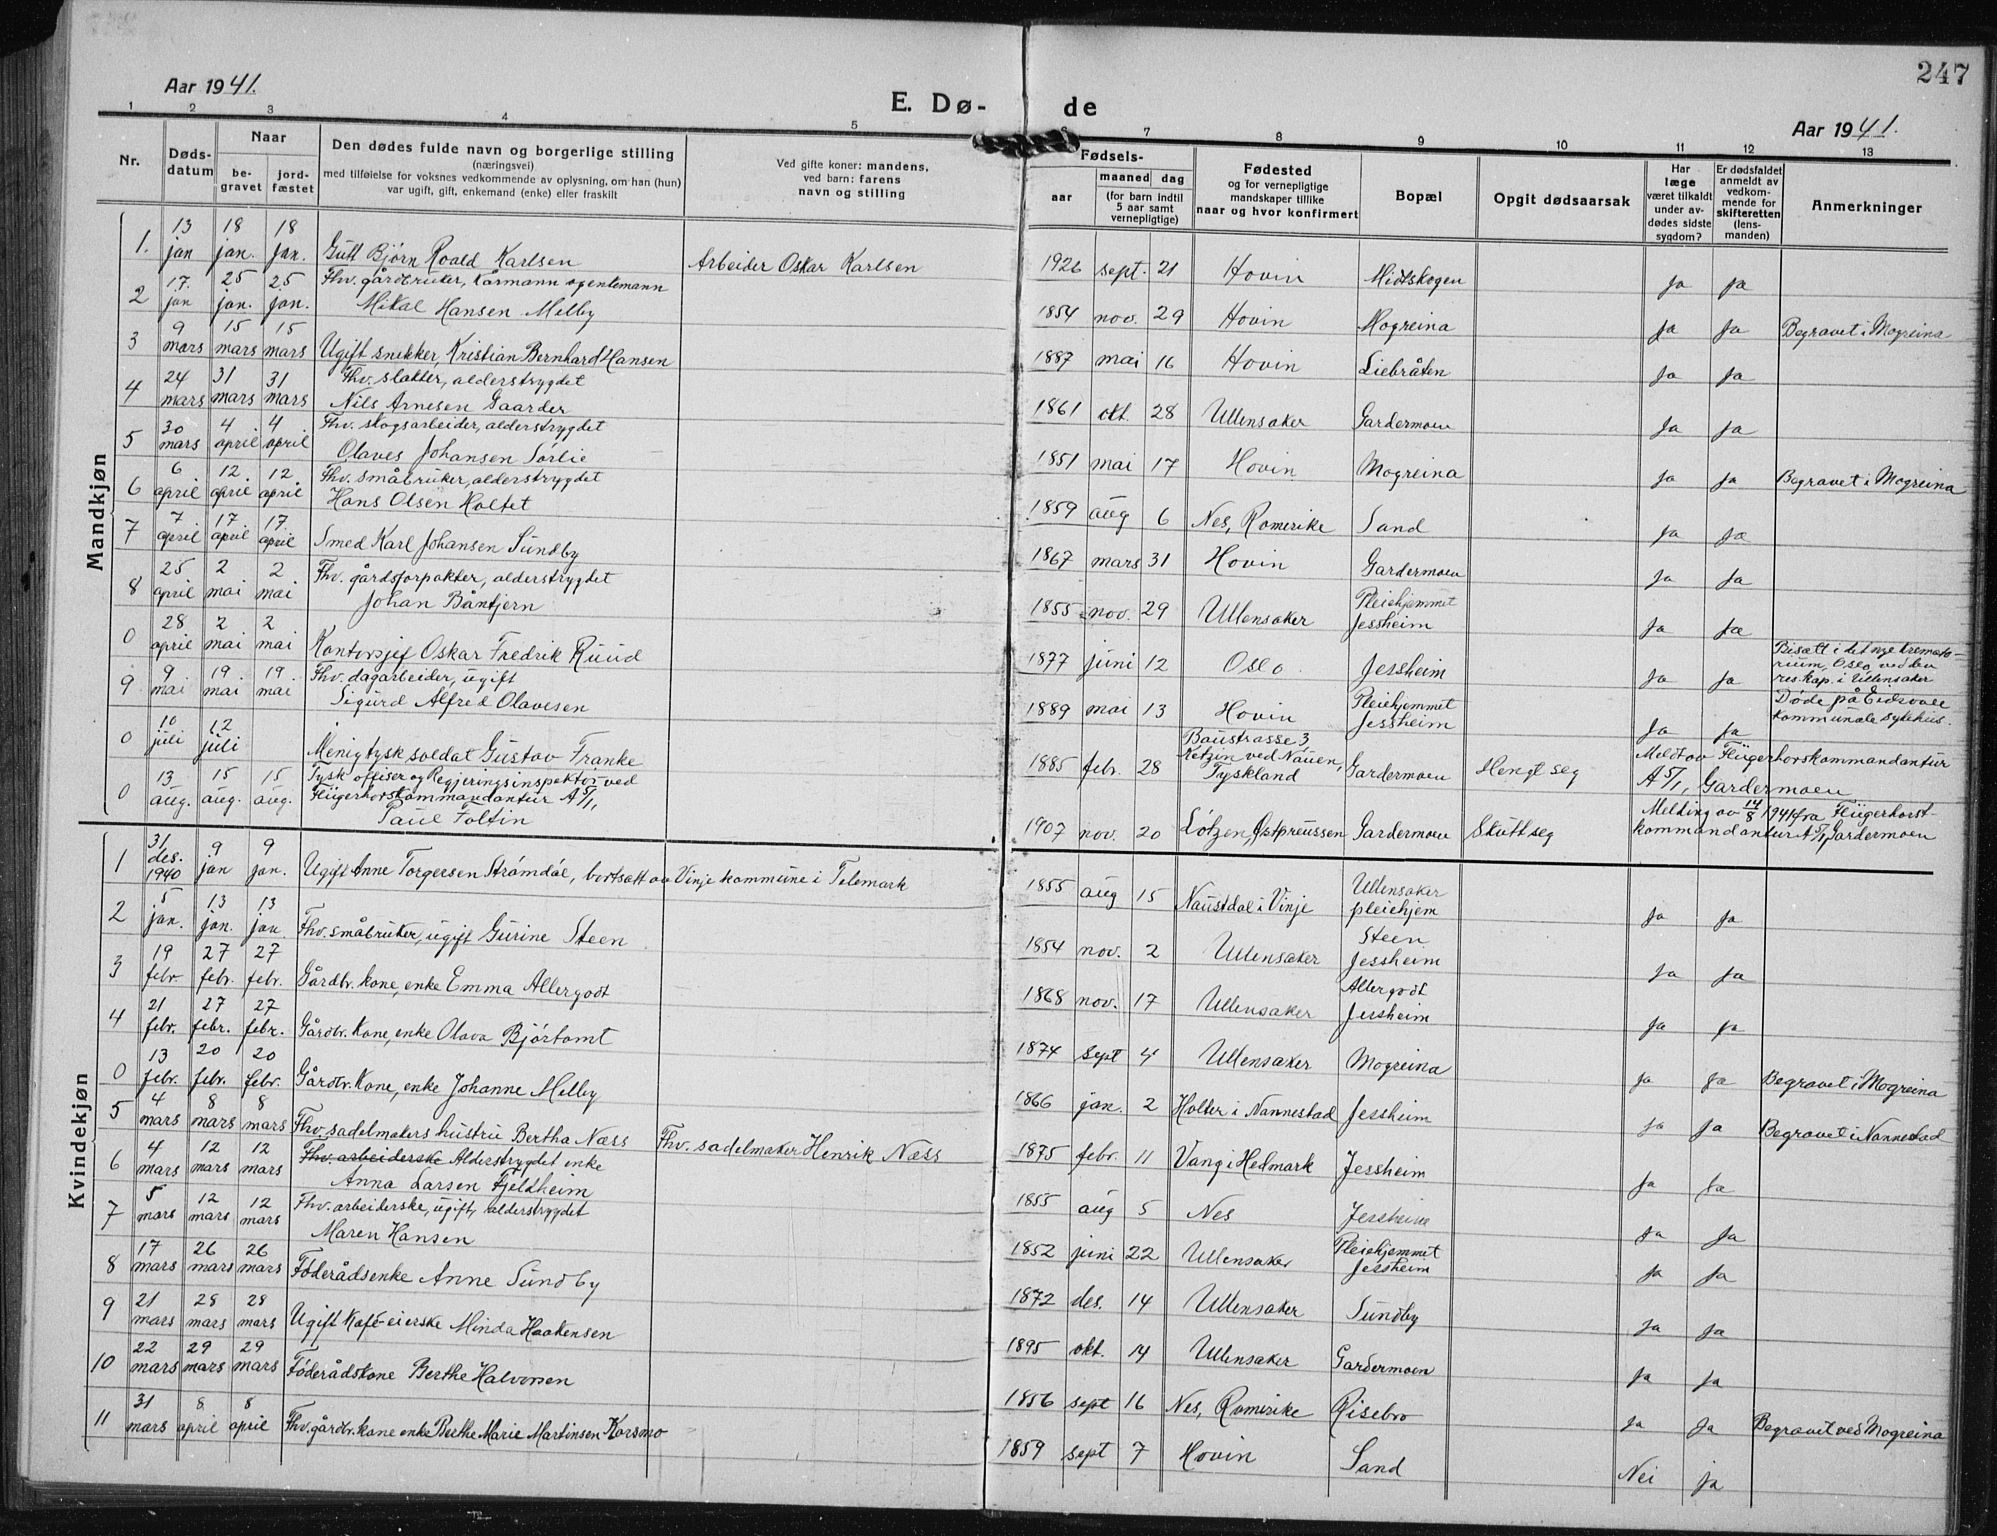 247
Aar 1941.
E. Dø- de
Aar 1941.
1 2 3 4 5 6 7 8 9 10 11 12 13
Nr.
Døds-
datum
Naar
be-
gravet
jord-
fæstet
Den dødes fulde navn og borgerlige stilling
(næringsvei)
med tilføielse for voksnes vedkommende av oplysning, om han (hun)
var ugift, gift, enkemand (enke) eller fraskilt
Ved gifte koner: mandens,
ved barn: farens
navn og stilling
Fødsels-
aar
maaned dag
(for barn indtil
5 aar samt
vernepligtige)
Fødested
og for vernepligtige
mandskaper tillike
naar og hvor konfirmert
Bopæl
Opgit dødsaarsak
Har
læge
været tilkaldt
under av-
dødes sidste
sygdom?
Er dødsfaldet
anmeldt av
vedkom-
mende for
skifteretten
(lens-
manden)
Anmerkninger
Mandkjøn
1. 13 jan 18 jan. 18 jan. Gutt Bjørn Roald Karlsen Arbeider Oskar Karlsen 1926 sept. 21 Hovin Midtskogen Ja Ja
2 17. jan 25 jan. 25 jan. Fhv. gårdbruker, kårmann og enkemann
Mikal Hansen Melby 1854 nov. 29 Hovin Mogreina Ja Ja Begravet i Mogreina
3 9 mars 15 mars 15 mars Ugift snekker, Kristian Bernhard Hansen 1887 mai 16 Hovin Liebråten Ja Ja
4 24 mars 31 mars 31 mars Fhv. slakter, alderstrygdet
Nils Arnesen Gaarder 1861 okt. 28 Ullensaker Gardermoen Ja Ja
5 30 mars 4 april 4 april Fhv. skogsarbeider, alderstrygdet
Olaves Johansen Sørlie 1851 mai 17 Hovin Mogreina Ja Ja Begravet i Mogreina
6 6 april 12 april 12 april Fhv. småbruker, alderstrygdet
Hans Olsen Holtet 1859 aug 6 Nes, Romerike Sand Ja Ja
7 7 april 17 april 17 april Smed Karl Johansen Sundby 1867 mars 31 Hovin Gardermoen Ja Ja
8 25 april 2 mai 2 mai Fhv. gårdsforpakter, alderstrygdet
Johan Båntjern 1855 nov. 29 Ullensaker Pleiehjemmet
Jessheim Ja Ja
0 28 april 2 mai 2 mai Kontorsjef Oskar Fredrik Ruud 1877 juni 12 Oslo Jessheim Ja Ja Bisatt i det nye kremato-
rium, Oslo, ved den
res. kap. i Ullensaker
9 9 mai 19 mai 19 mai Fhv. dagarbeider, ugift
Sigurd Alfred Olavesen 1889 mai 13 Hovin Pleiehjemmet
Jessheim Ja Ja Døde på Eidsvoll
kommunale sykehus.
0 10 juli 12 juli Menig tysk soldat Gustav Franke 1885 febr. 28 Baustrasse 3
Ketzin ved Nauen,
Tyskland Gardermoen Hengt seg Meldt av Fliegerhorskommandantur
A 5/I, Gardermoen
0 13 aug. 15 aug. 15 aug. Tysk offiser og Regjeringsinspektor ved
Fliegerhorskommandantur A 5/1,
Paul Foltin 1907 nov. 20 Lötzen, Ostpreussen Gardermoen Skutt seg Melding av 14/8 1941 fra Fliegerhorst-
kommandantur A 5/1, Gardermoen
Kvindekjøn
1 31 des. 1940 9 jan 9 jan. Ugift Anne Torgersen Strømdal, bortsatt av Vinje kommune i Telemark 1855 aug 15 Naustdal i Vinje Ullensaker
pleiehjem Ja Ja
2 5 jan. 13 jan. 13 jan Fhv. småbruker, ugift Gurine Steen 1854 nov. 2 Ullensaker Steen
Jessheim Ja Ja
3 19 febr 27 febr. 27 febr. Gårdbr. kone, enke Emma Allergodt 1868 nov. 17 Ullensaker Allergodt
Jessheim Ja Ja
4 21 febr. 27 febr. 27 febr. Gårdbr. kone, enke Olava Bjørtomt 1874 sept 4 Ullensaker Mogreina Ja Ja Begravet i Mogreina
0 13 febr. 20 febr. 20 febr. Gårdbr. kone, enke Johanne Melby 1866 jan. 2 Holter i Nannestad Jessheim Ja Ja Begravet i Nannestad
5 4 mars 8 mars 8 mars Fhv. sadelmakers hustru Bertha Næss Fhv. sadelmaker Henrik Næss 1875 febr. 11 Vang i Hedmark Jessheim Ja Ja
6 4 mars 12 mars 12 mars Fhv. arbeiderske Alderstrygdet enke
Anna Larsen Fjeldheim 1855 aug 5 Nes Jessheim Ja Ja
7 5 mars 12 mars 12 mars Fhv. arbeiderske, ugift, alderstrygdet
Maren Hansen 1852 juni 22 Ullensaker Pleiehjemmet
Jessheim Ja Ja
8 17 mars 26 mars 26 mars Føderådsenke Anne Sundby 1872 des. 14 Ullensaker Sundby Ja Ja
9 21 mars 28 mars 28 mars Ugift Kafé-eierske Minda Haakensen 1895 okt. 14 Ullensaker Gardermoen Ja Ja
10 22 mars 29 mars 29 mars Føderådskone Berthe Halvorsen 1856 sept 16 Nes, Romerike Risebro Ja Ja Begravet ved Mogreina
11 31 mars 8 april 8 april Fhv. gårdbr. kone enke Berthe Marie Martinsen Korsmo 1859 sept 7 Hovin Sand Nei ja